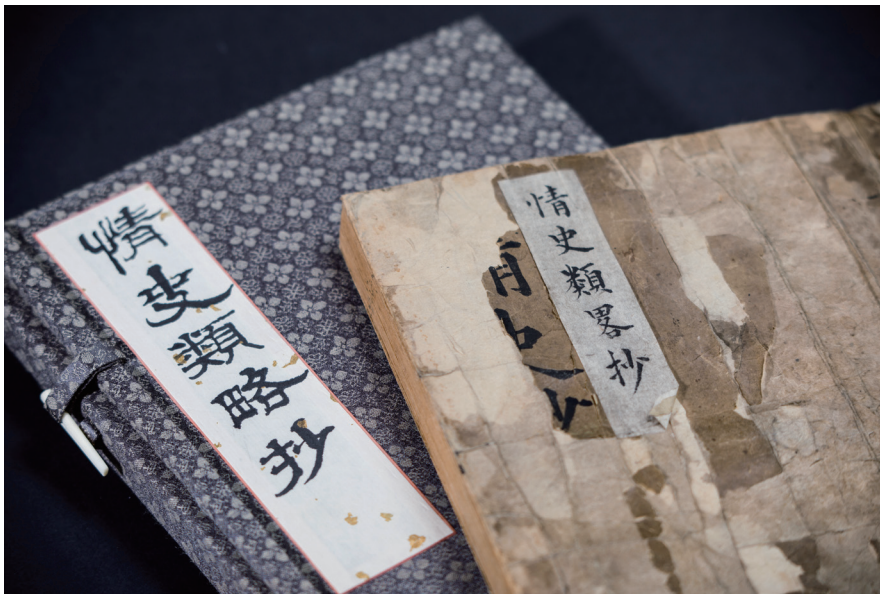 情史類略抄
情史類畧抄